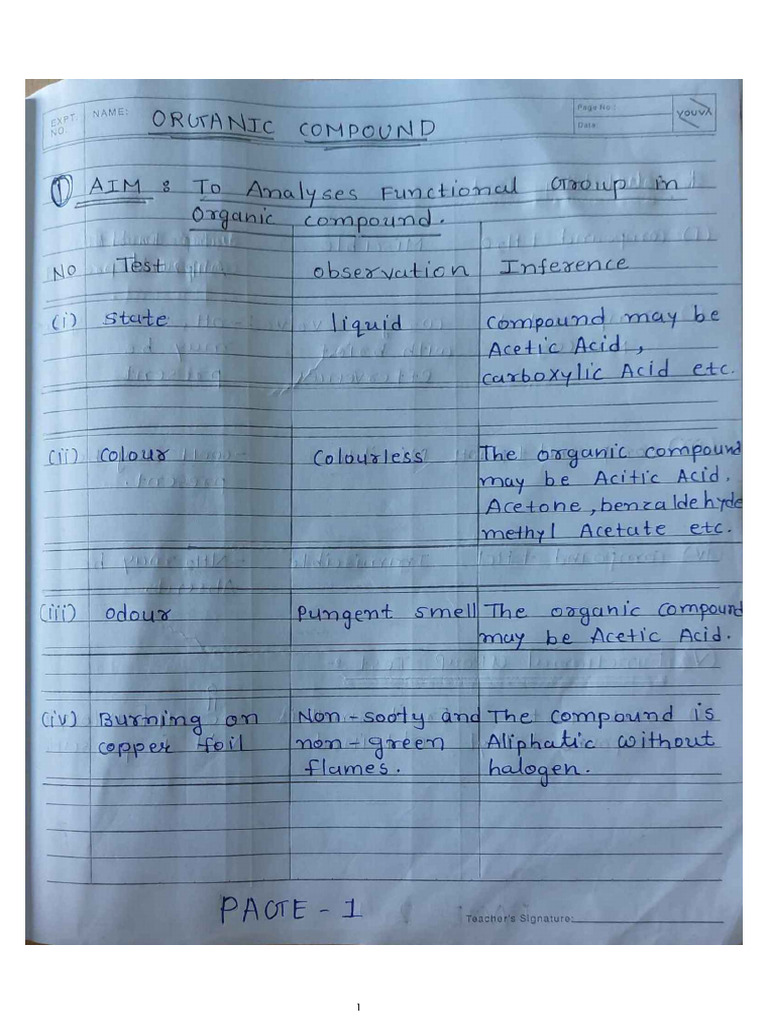 EXPT. NO. NAME: ORGANIC COMPOUND Page No.: YOUVA
Date:
① AIM : To Analyses Functional Group in
Organic compound.
No Test Observation Inference
(i) State liquid Compound may be
Acetic Acid,
carboxylic Acid etc.
(ii) Colour Colourless The organic compound
may be Acitic Acid.
Acetone, benzaldehyde
methyl Acetate etc.
(iii) Odour Pungent smell The organic compound
may be Acetic Acid.
(iv) Burning on Non-sooty and The compound is
copper foil non-green Aliphatic without
flames. halogen.
PAGE - 1
Teacher's Signature:
1